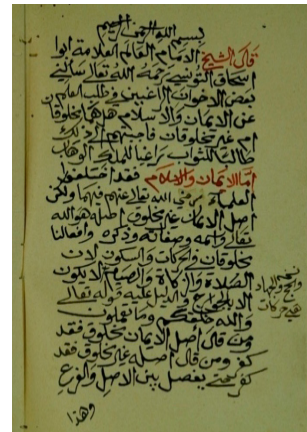 بسم الله الرحمن الرحيم
قال الشيخ الامام العالم العلامة ابوا
اسحاق التونسي رحمة الله تعالى سالني
بعض الاخوان الراغبين في طلب العلم
عن الايمان والاسلام هل هما مخلوقان
ام غير مخلوقان فاجبتهم الى ذلك
طالبا للثواب راغبا للملك الوهاب
اما الايمان والاسلام فقد اختلفوا
العلماء رضي الله تعالى عنهم فيهما ولكن
اصل الايمان غير مخلوق اصله هو الله
تعالى واسمه وصفاته وذكره وافعالنا
مخلوقات في الحركات والسكون لان
الصلاة والزكاة والصيام لا يكون
الا بالجوارح والدليل عليه قوله تعالى
والله خلقكم وما تعملون
ومن قال اصل الايمان مخلوق فقد
كفر ومن قال اصله غير مخلوق فقد
كفر حتى يفصل بين الاصل والفرع
والحج والجهاد
حركات
وهذا